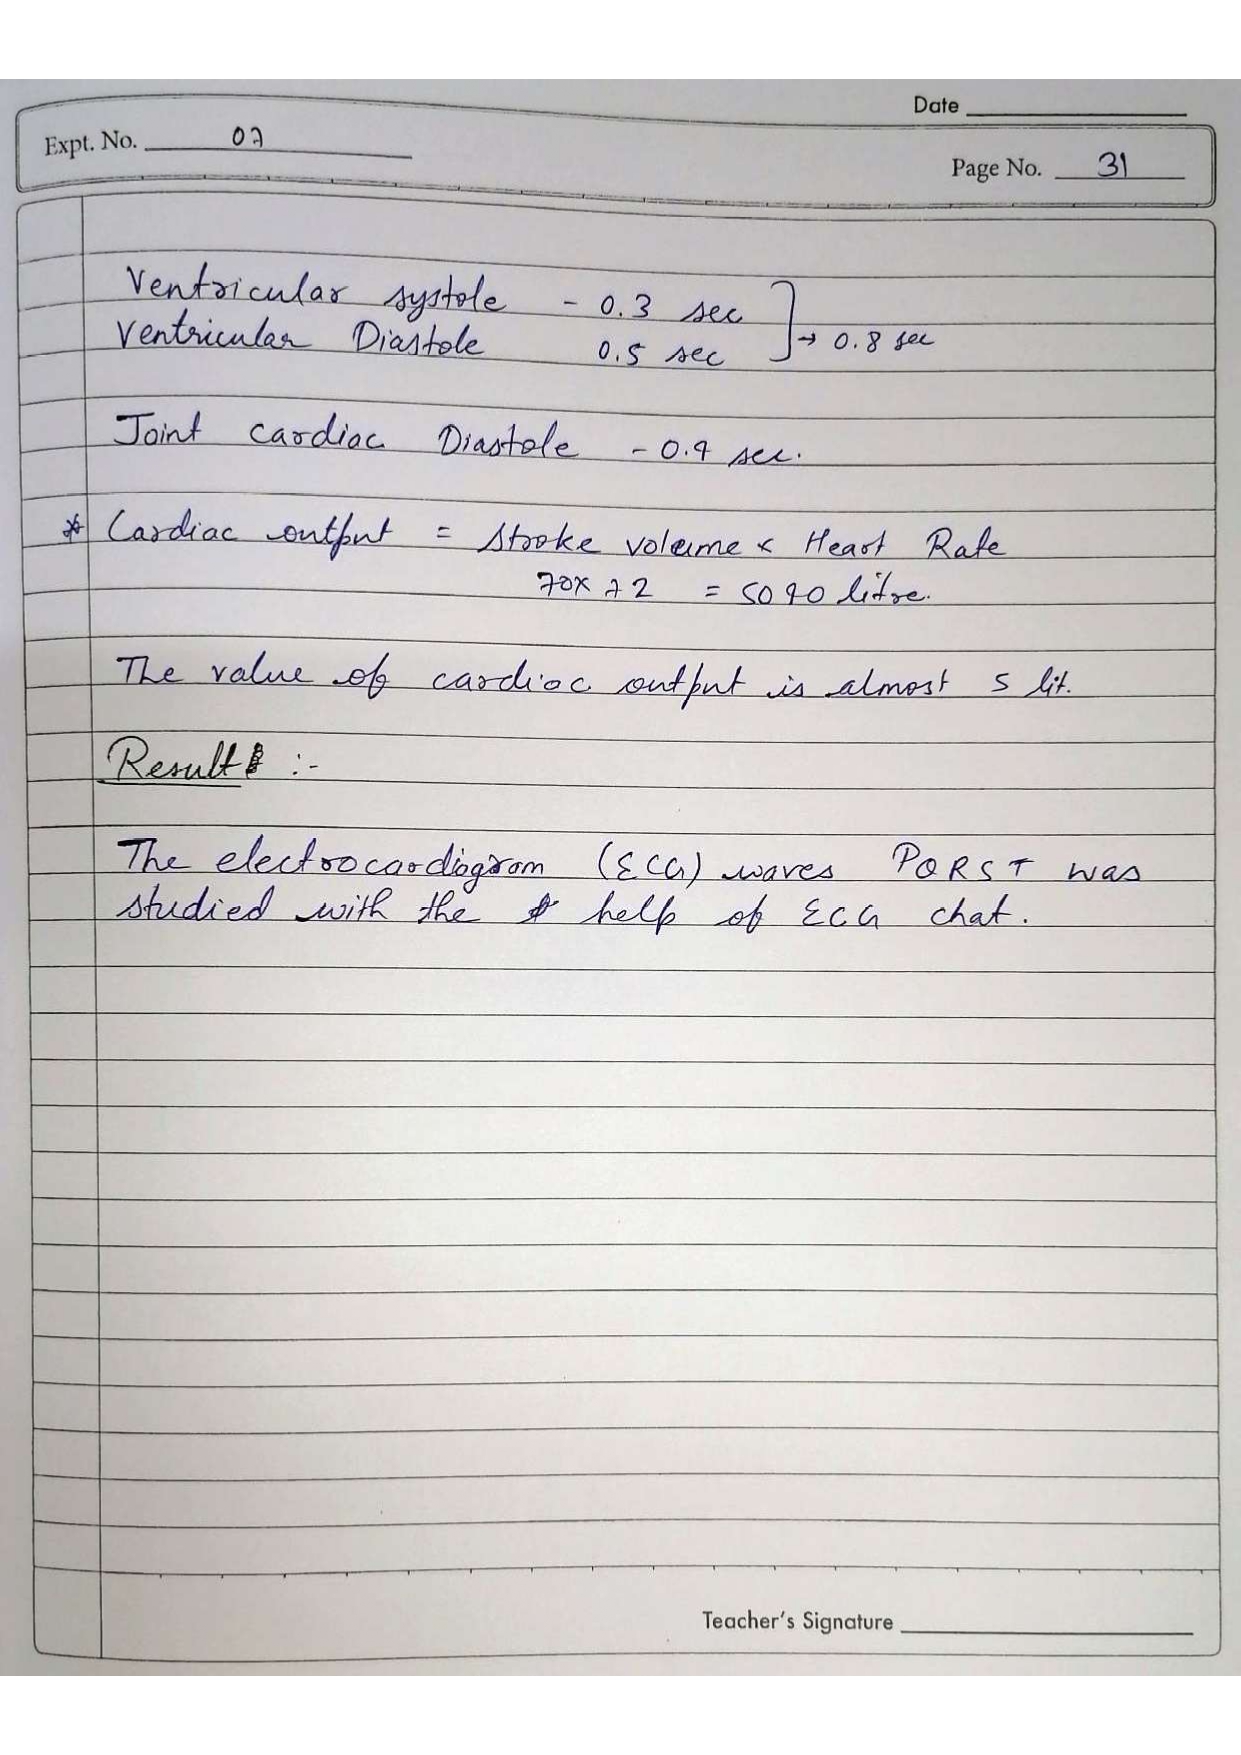 Date
Expt. No. 07
Page No. 31
Ventricular systole - 0.3 sec
Ventricular Diastole 0.5 sec → 0.8 sec
Joint cardiac Diastole - 0.4 sec.
* Cardiac output = stroke volume × Heart Rate
70x72 = 5040 litre.
The value of cardiac output is almost 5 lit.
Result :-
The electrocardiogram (ECG) waves PQRST was
studied with the help of ECG chat.
Teacher's Signature